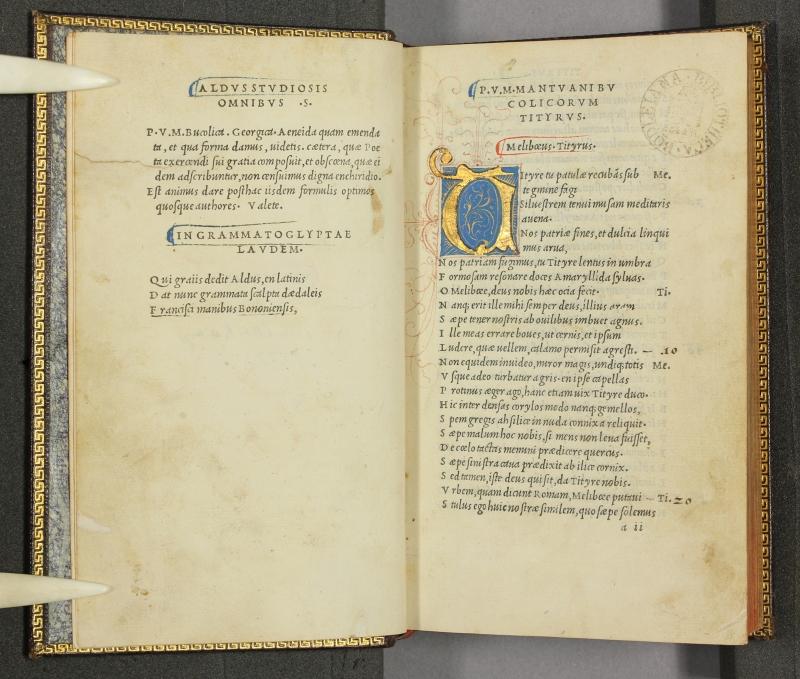 ALDVS STVDIOSIS
OMNIBVS ·S·
P·V·M·Bucolica· Georgica· Aeneida quam emenda
ta, et qua forma damus, uidetis· cætera, quæ Poe
ta exercendi sui gratia composuit, et obscœna, quæ ei
dem adscribuntur, non censuimus digna enchiridio·
Est animus dare posthac iisdem formulis optimos
quosque authores· Valete·
IN GRAMMATOGLYPTAE
LAVDEM·
Qui graiis dedit Aldus, en latinis
Dat nunc grammata scalpta dædaleis
Francisci manibus Bononiensis,
P·V·M·MANTVANI BV
COLICORVM
TITYRVS·
Melibœus·Tityrus·
Tityre tu patulæ recubãs sub Me.
tegmine fagi
Siluestrem tenui musam meditaris
auena·
Nos patriæ fines, et dulcia linqui
mus arua,
Nos patriam fugimus, tu Tityre lentus in umbra
Formosam resonare doces Amaryllida syluas·
O Melibœe, deus nobis hæc ocia fecit· Ti.
Nanq; erit ille mihi semper deus, illius aram
Sæpe tener nostris ab ouilibus imbuet agnus·
Ille meas errare boues, ut cernis, et ipsum
Ludere, quæ uellem, calamo permisit agresti· — 10
Non equidem inuideo, miror magis, undiq; totis Me.
Vsque adeo turbatur agris· en ipse capellas
Protinus æger ago, hanc etiam uix Tityre duco·
Hic inter densas corylos modo nanq; gemellos,
Spem gregis ah silice in nuda connixa reliquit·
Sæpe malum hoc nobis, si mens non leua fuisset,
De cœlo tactas memini prædicere quercus·
Sæpe sinistra caua prædixit ab ilice cornix·
Sed tamen, iste deus qui sit, da Tityre nobis·
Vrbem, quam dicunt Romam, Melibœe putaui — Ti. 20
Stultus ego huic nostræ similem, quo sæpe solemus
a ii